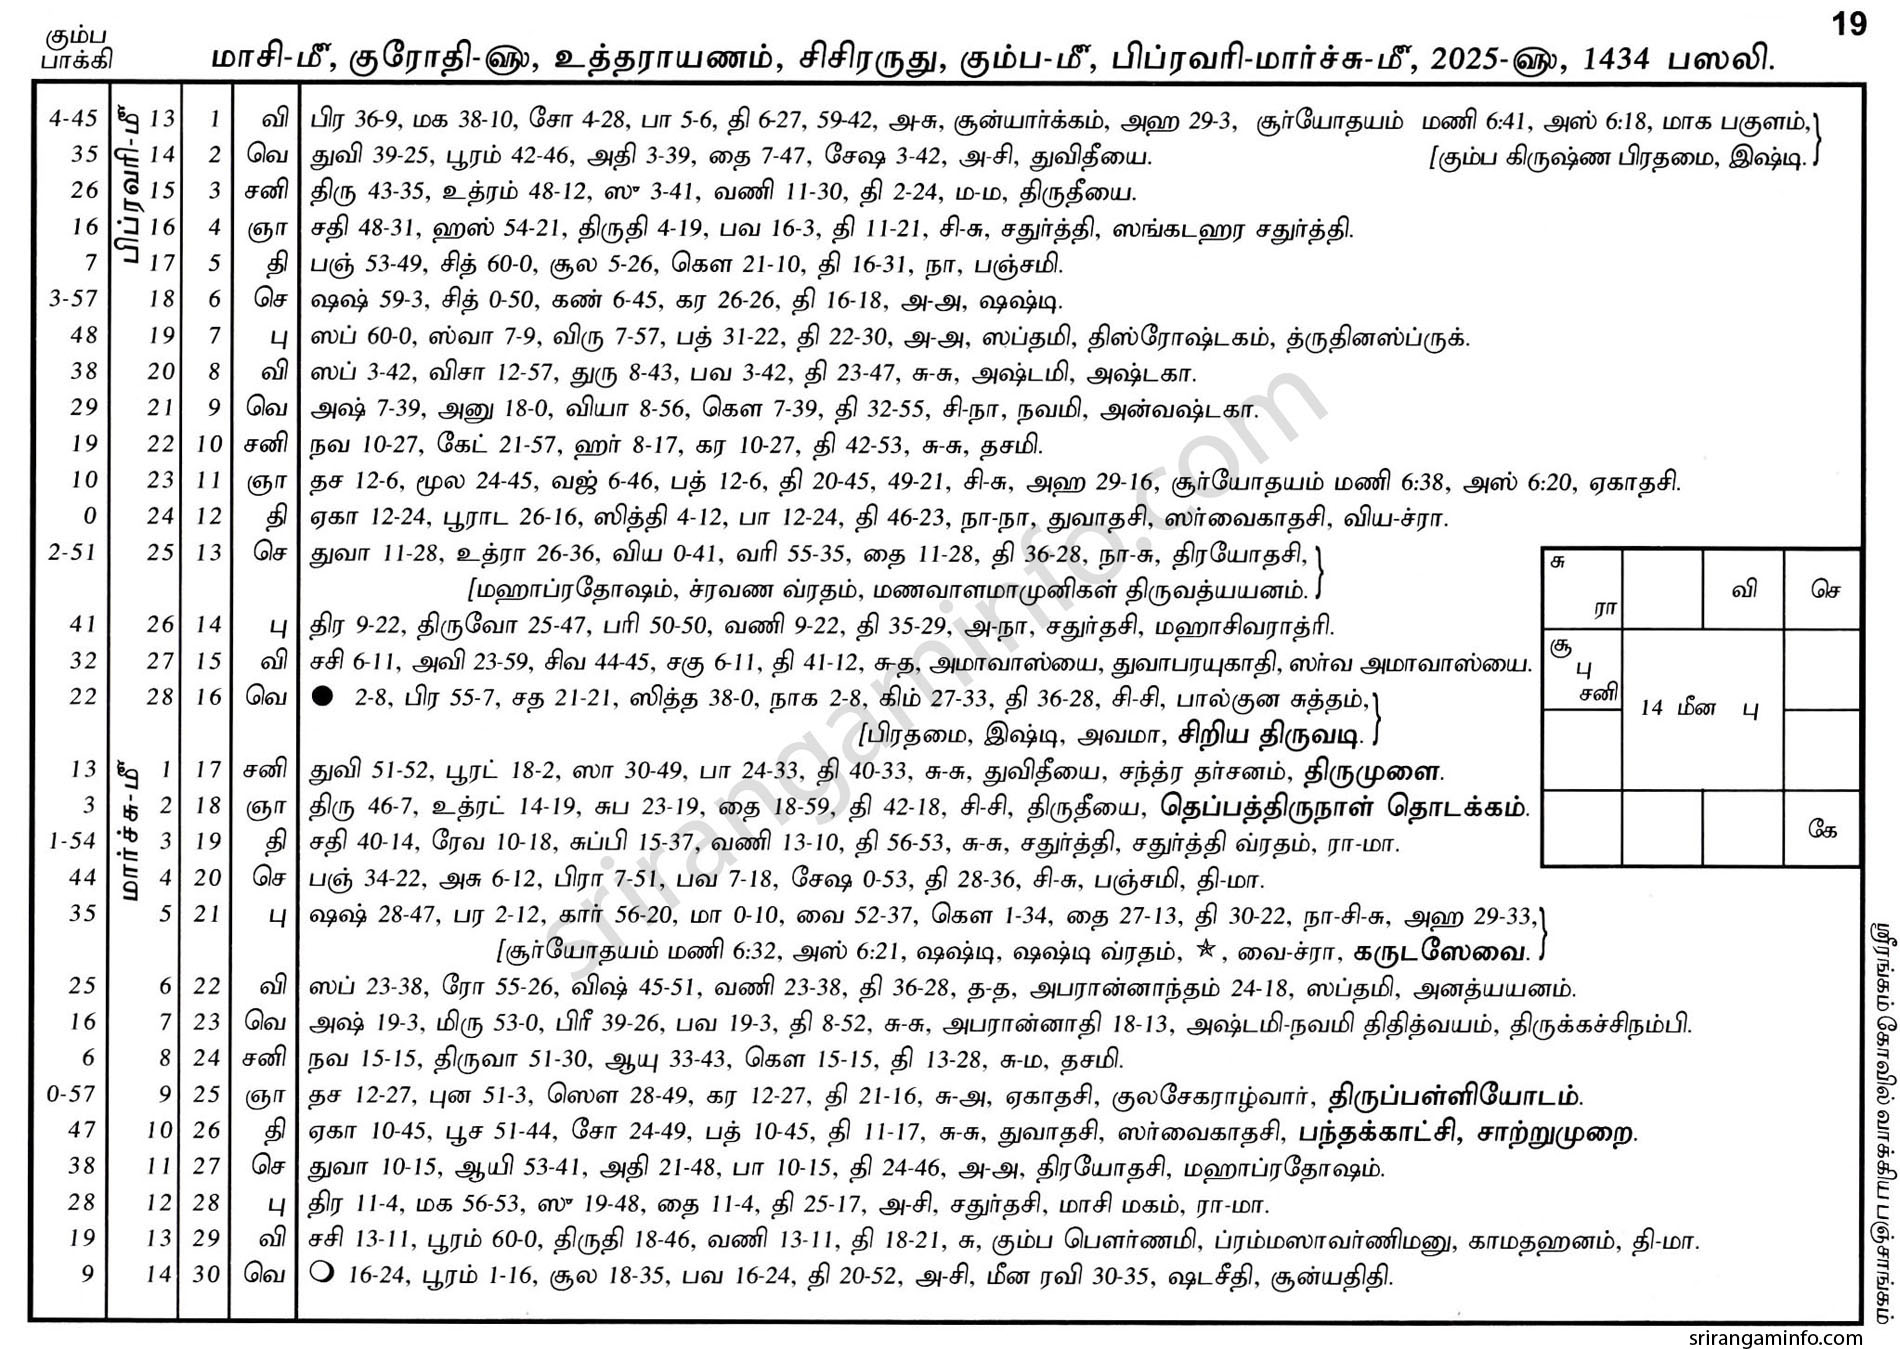 19
கும்ப
பாக்கி
மாசி-மீ, குரோதி-௵, உத்தராயணம், சிசிரருது, கும்ப-மீ, பிப்ரவரி-மார்ச்சு-மீ, 2025-௵, 1434 பஸலி.
4-45 13 1 வி பிர 36-9, மக 38-10, சோ 4-28, பா 5-6, தி 6-27, 59-42, அ-சு, சூன்யார்க்கம், அஹ 29-3, சூர்யோதயம் மணி 6:41, அஸ் 6:18, மாக பகுளம்,
35 14 2 வெ துவி 39-25, பூரம் 42-46, அதி 3-39, தை 7-47, சேஷ 3-42, அ-சி, துவிதீயை. [கும்ப கிருஷ்ண பிரதமை, இஷ்டி.
26 15 3 சனி திரு 43-35, உத்ரம் 48-12, ஸு 3-41, வணி 11-30, தி 2-24, ம-ம, திருதீயை.
16 16 4 ஞா சதி 48-31, ஹஸ் 54-21, திருதி 4-19, பவ 16-3, தி 11-21, சி-சு, சதுர்த்தி, ஸங்கடஹர சதுர்த்தி.
7 17 5 தி பஞ் 53-49, சித் 60-0, சூல 5-26, கௌ 21-10, தி 16-31, நா, பஞ்சமி.
3-57 18 6 செ ஷஷ் 59-3, சித் 0-50, கண் 6-45, கர 26-26, தி 16-18, அ-அ, ஷஷ்டி.
48 19 7 பு ஸப் 60-0, ஸ்வா 7-9, விரு 7-57, பத் 31-22, தி 22-30, அ-அ, ஸப்தமி, திஸ்ரோஷ்டகம், த்ருதினஸ்ப்ருக்.
38 20 8 வி ஸப் 3-42, விசா 12-57, துரு 8-43, பவ 3-42, தி 23-47, சு-சு, அஷ்டமி, அஷ்டகா.
29 21 9 வெ அஷ் 7-39, அனு 18-0, வியா 8-56, கௌ 7-39, தி 32-55, சி-நா, நவமி, அன்வஷ்டகா.
19 22 10 சனி நவ 10-27, கேட் 21-57, ஹர் 8-17, கர 10-27, தி 42-53, சு-சு, தசமி.
10 23 11 ஞா தச 12-6, மூல 24-45, வஜ் 6-46, பத் 12-6, தி 20-45, 49-21, சி-சு, அஹ 29-16, சூர்யோதயம் மணி 6:38, அஸ் 6:20, ஏகாதசி.
0 24 12 தி ஏகா 12-24, பூராட 26-16, ஸித்தி 4-12, பா 12-24, தி 46-23, நா-நா, துவாதசி, ஸர்வைகாதசி, விய-ச்ரா.
2-51 25 13 செ துவா 11-28, உத்ரா 26-36, விய 0-41, வரி 55-35, தை 11-28, தி 36-28, நா-சு, திரயோதசி,
[மஹாப்ரதோஷம், ச்ரவண வ்ரதம், மணவாளமாமுனிகள் திருவத்யயனம்.
41 26 14 பு திர 9-22, திருவோ 25-47, பரி 50-50, வணி 9-22, தி 35-29, அ-நா, சதுர்தசி, மஹாசிவராத்ரி.
32 27 15 வி சசி 6-11, அவி 23-59, சிவ 44-45, சகு 6-11, தி 41-12, சு-த, அமாவாஸ்யை, துவாபரயுகாதி, ஸர்வ அமாவாஸ்யை.
22 28 16 வெ ● 2-8, பிர 55-7, சத 21-21, ஸித்த 38-0, நாக 2-8, கிம் 27-33, தி 36-28, சி-சி, பால்குன சுத்தம்,
[பிரதமை, இஷ்டி, அவமா, சிறிய திருவடி.
13 1 17 சனி துவி 51-52, பூரட் 18-2, ஸா 30-49, பா 24-33, தி 40-33, சு-சு, துவிதீயை, சந்த்ர தர்சனம், திருமுளை.
3 2 18 ஞா திரு 46-7, உத்ரட் 14-19, சுப 23-19, தை 18-59, தி 42-18, சி-சி, திருதீயை, தெப்பத்திருநாள் தொடக்கம்.
1-54 3 19 தி சதி 40-14, ரேவ 10-18, சுப்பி 15-37, வணி 13-10, தி 56-53, சு-சு, சதுர்த்தி, சதுர்த்தி வ்ரதம், ரா-மா.
44 4 20 செ பஞ் 34-22, அசு 6-12, பிரா 7-51, பவ 7-18, சேஷ 0-53, தி 28-36, சி-சு, பஞ்சமி, தி-மா.
35 5 21 பு ஷஷ் 28-47, பர 2-12, கார் 56-20, மா 0-10, வை 52-37, கௌ 1-34, தை 27-13, தி 30-22, நா-சி-சு, அஹ 29-33,
[சூர்யோதயம் மணி 6:32, அஸ் 6:21, ஷஷ்டி, ஷஷ்டி வ்ரதம், ☆, வை-ச்ரா, கருடஸேவை.
25 6 22 வி ஸப் 23-38, ரோ 55-26, விஷ் 45-51, வணி 23-38, தி 36-28, த-த, அபரான்னாந்தம் 24-18, ஸப்தமி, அனத்யயனம்.
16 7 23 வெ அஷ் 19-3, மிரு 53-0, பிரீ 39-26, பவ 19-3, தி 8-52, சு-சு, அபரான்னாதி 18-13, அஷ்டமி-நவமி திதித்வயம், திருக்கச்சிநம்பி.
6 8 24 சனி நவ 15-15, திருவா 51-30, ஆயு 33-43, கௌ 15-15, தி 13-28, சு-ம, தசமி.
0-57 9 25 ஞா தச 12-27, புன 51-3, ஸௌ 28-49, கர 12-27, தி 21-16, சு-அ, ஏகாதசி, குலசேகராழ்வார், திருப்பள்ளியோடம்.
47 10 26 தி ஏகா 10-45, பூச 51-44, சோ 24-49, பத் 10-45, தி 11-17, சு-சு, துவாதசி, ஸர்வைகாதசி, பந்தக்காட்சி, சாற்றுமுறை.
38 11 27 செ துவா 10-15, ஆயி 53-41, அதி 21-48, பா 10-15, தி 24-46, அ-அ, திரயோதசி, மஹாப்ரதோஷம்.
28 12 28 பு திர 11-4, மக 56-53, ஸு 19-48, தை 11-4, தி 25-17, அ-சி, சதுர்தசி, மாசி மகம், ரா-மா.
19 13 29 வி சசி 13-11, பூரம் 60-0, திருதி 18-46, வணி 13-11, தி 18-21, சு, கும்ப பௌர்ணமி, ப்ரம்மஸாவர்ணிமனு, காமதஹனம், தி-மா.
9 14 30 வெ ○ 16-24, பூரம் 1-16, சூல 18-35, பவ 16-24, தி 20-52, அ-சி, மீன ரவி 30-35, ஷடசீதி, சூன்யதிதி.
பிப்ரவரி-மீ
மார்ச்சு-மீ
சு
ரா
வி
செ
சூ
பு
சனி
14 மீன பு
கே
ஸ்ரீரங்கம் கோவில் வாக்கிய பஞ்சாங்கம்
srirangaminfo.com
srirangaminfo.com